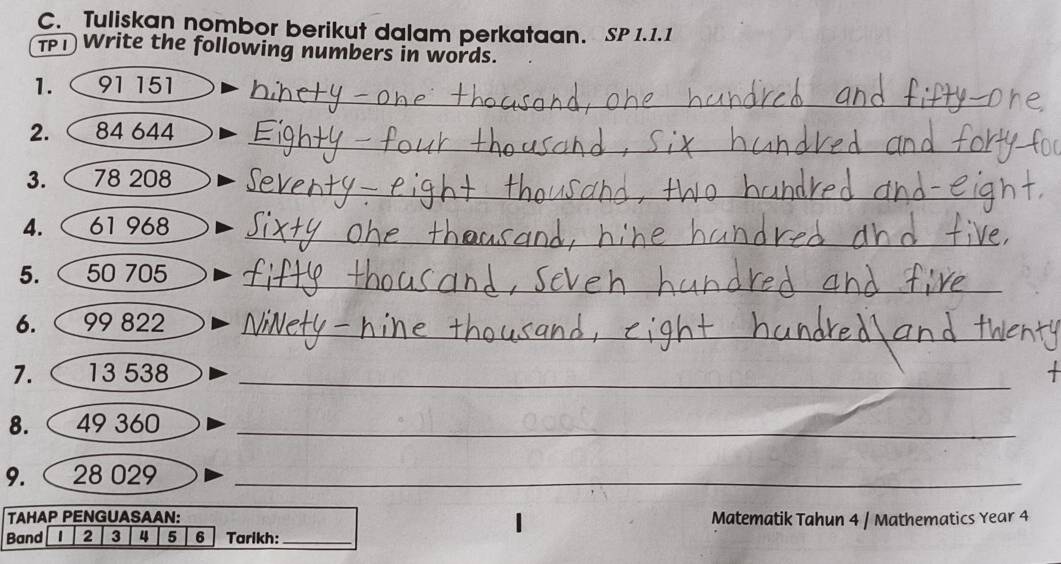 C. Tuliskan nombor berikut dalam perkataan. SP 1.1.1
TP 1 Write the following numbers in words.
1. 91 151 ninety-one thousand, one hundred and fifty-one.
2. 84 644 Eighty-four thousand, six hundred and forty-fou
3. 78 208 Seventy-eight thousand, two hundred and-eight.
4. 61 968 Sixty one thousand, nine hundred and five,
5. 50 705 fifty thousand, seven hundred and five
6. 99 822 Ninety-nine thousand, eight hundred and twenty
t
7. 13 538
8. 49 360
9. 28 029
TAHAP PENGUASAAN:
Band 1 2 3 4 5 6 Tarikh:
1
Matematik Tahun 4 / Mathematics Year 4